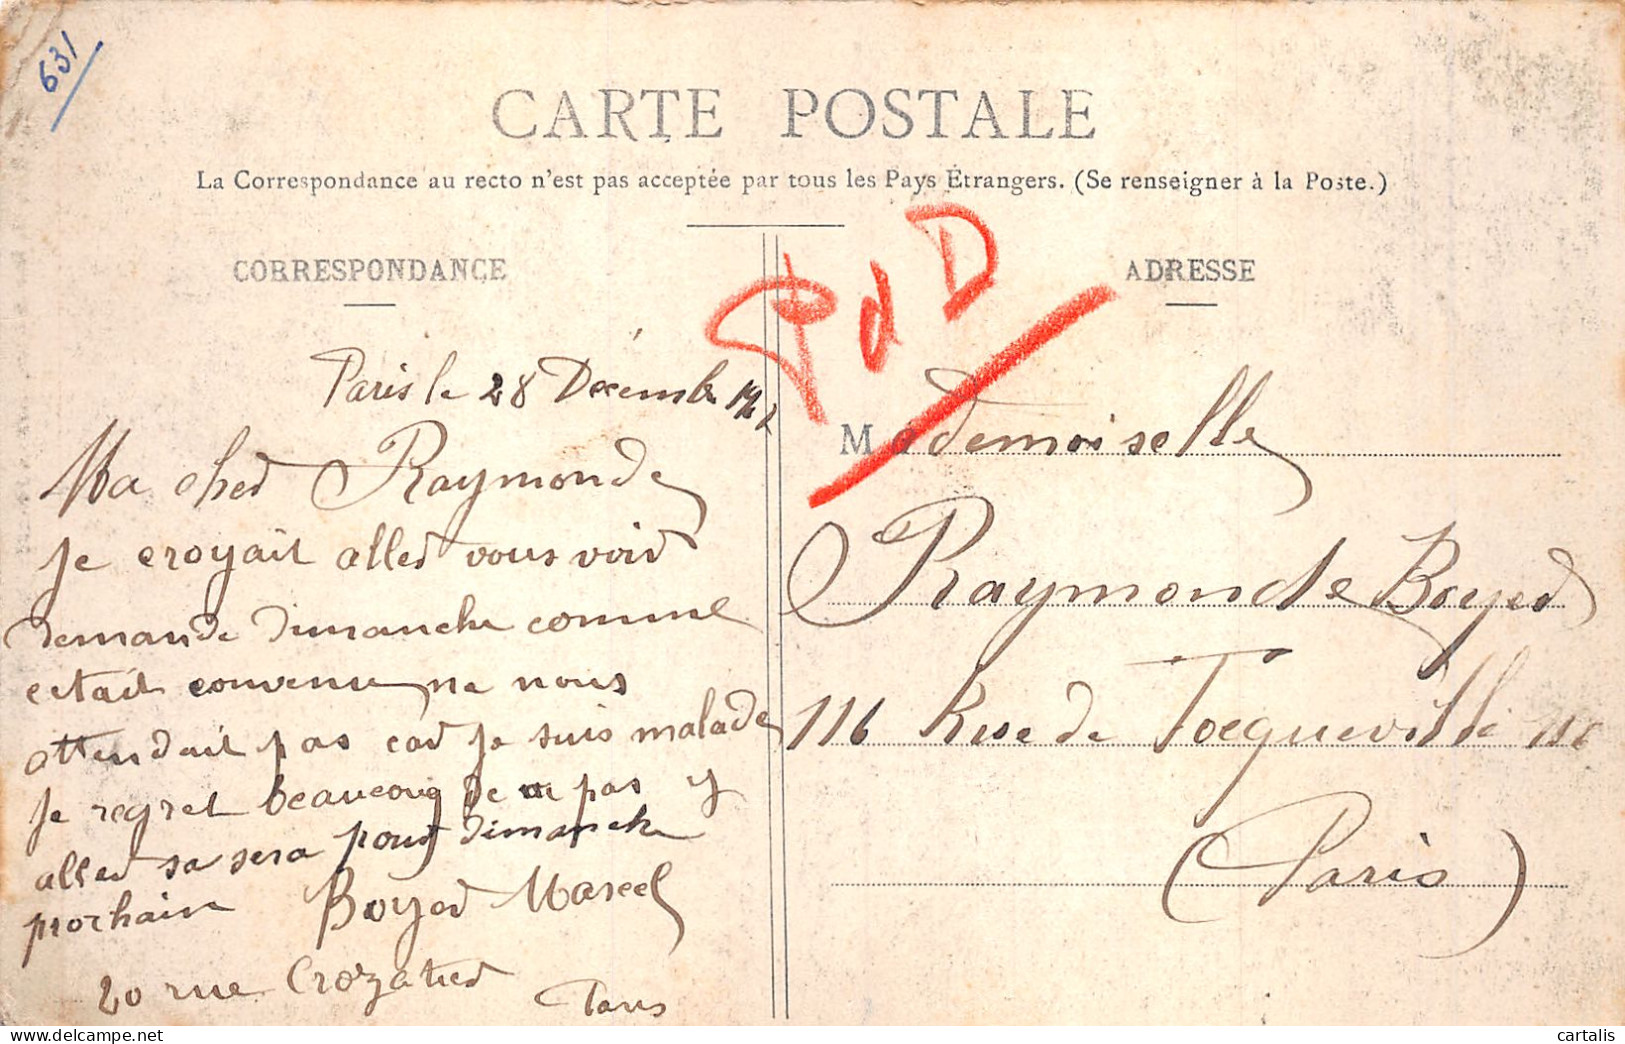 631
CARTE POSTALE
La Correspondance au recto n'est pas acceptée par tous les Pays Étrangers. (Se renseigner à la Poste.)
CORRESPONDANCE
Paris le 28 Décembre
Ma cher Raymonde
Je croyait aller vous voir
demande dimanche comme
cetait convenu ne nous
attendait pas car je suis malade
Je regret beaucoup de pas y
aller sa sera pour dimanche
prochain Boyer Marcel
20 rue Crozatier
Paris
PdD
ADRESSE
Mademoiselle
Raymonde Boyer
116 Rue de Tocqueville 116
(Paris)
cartalis